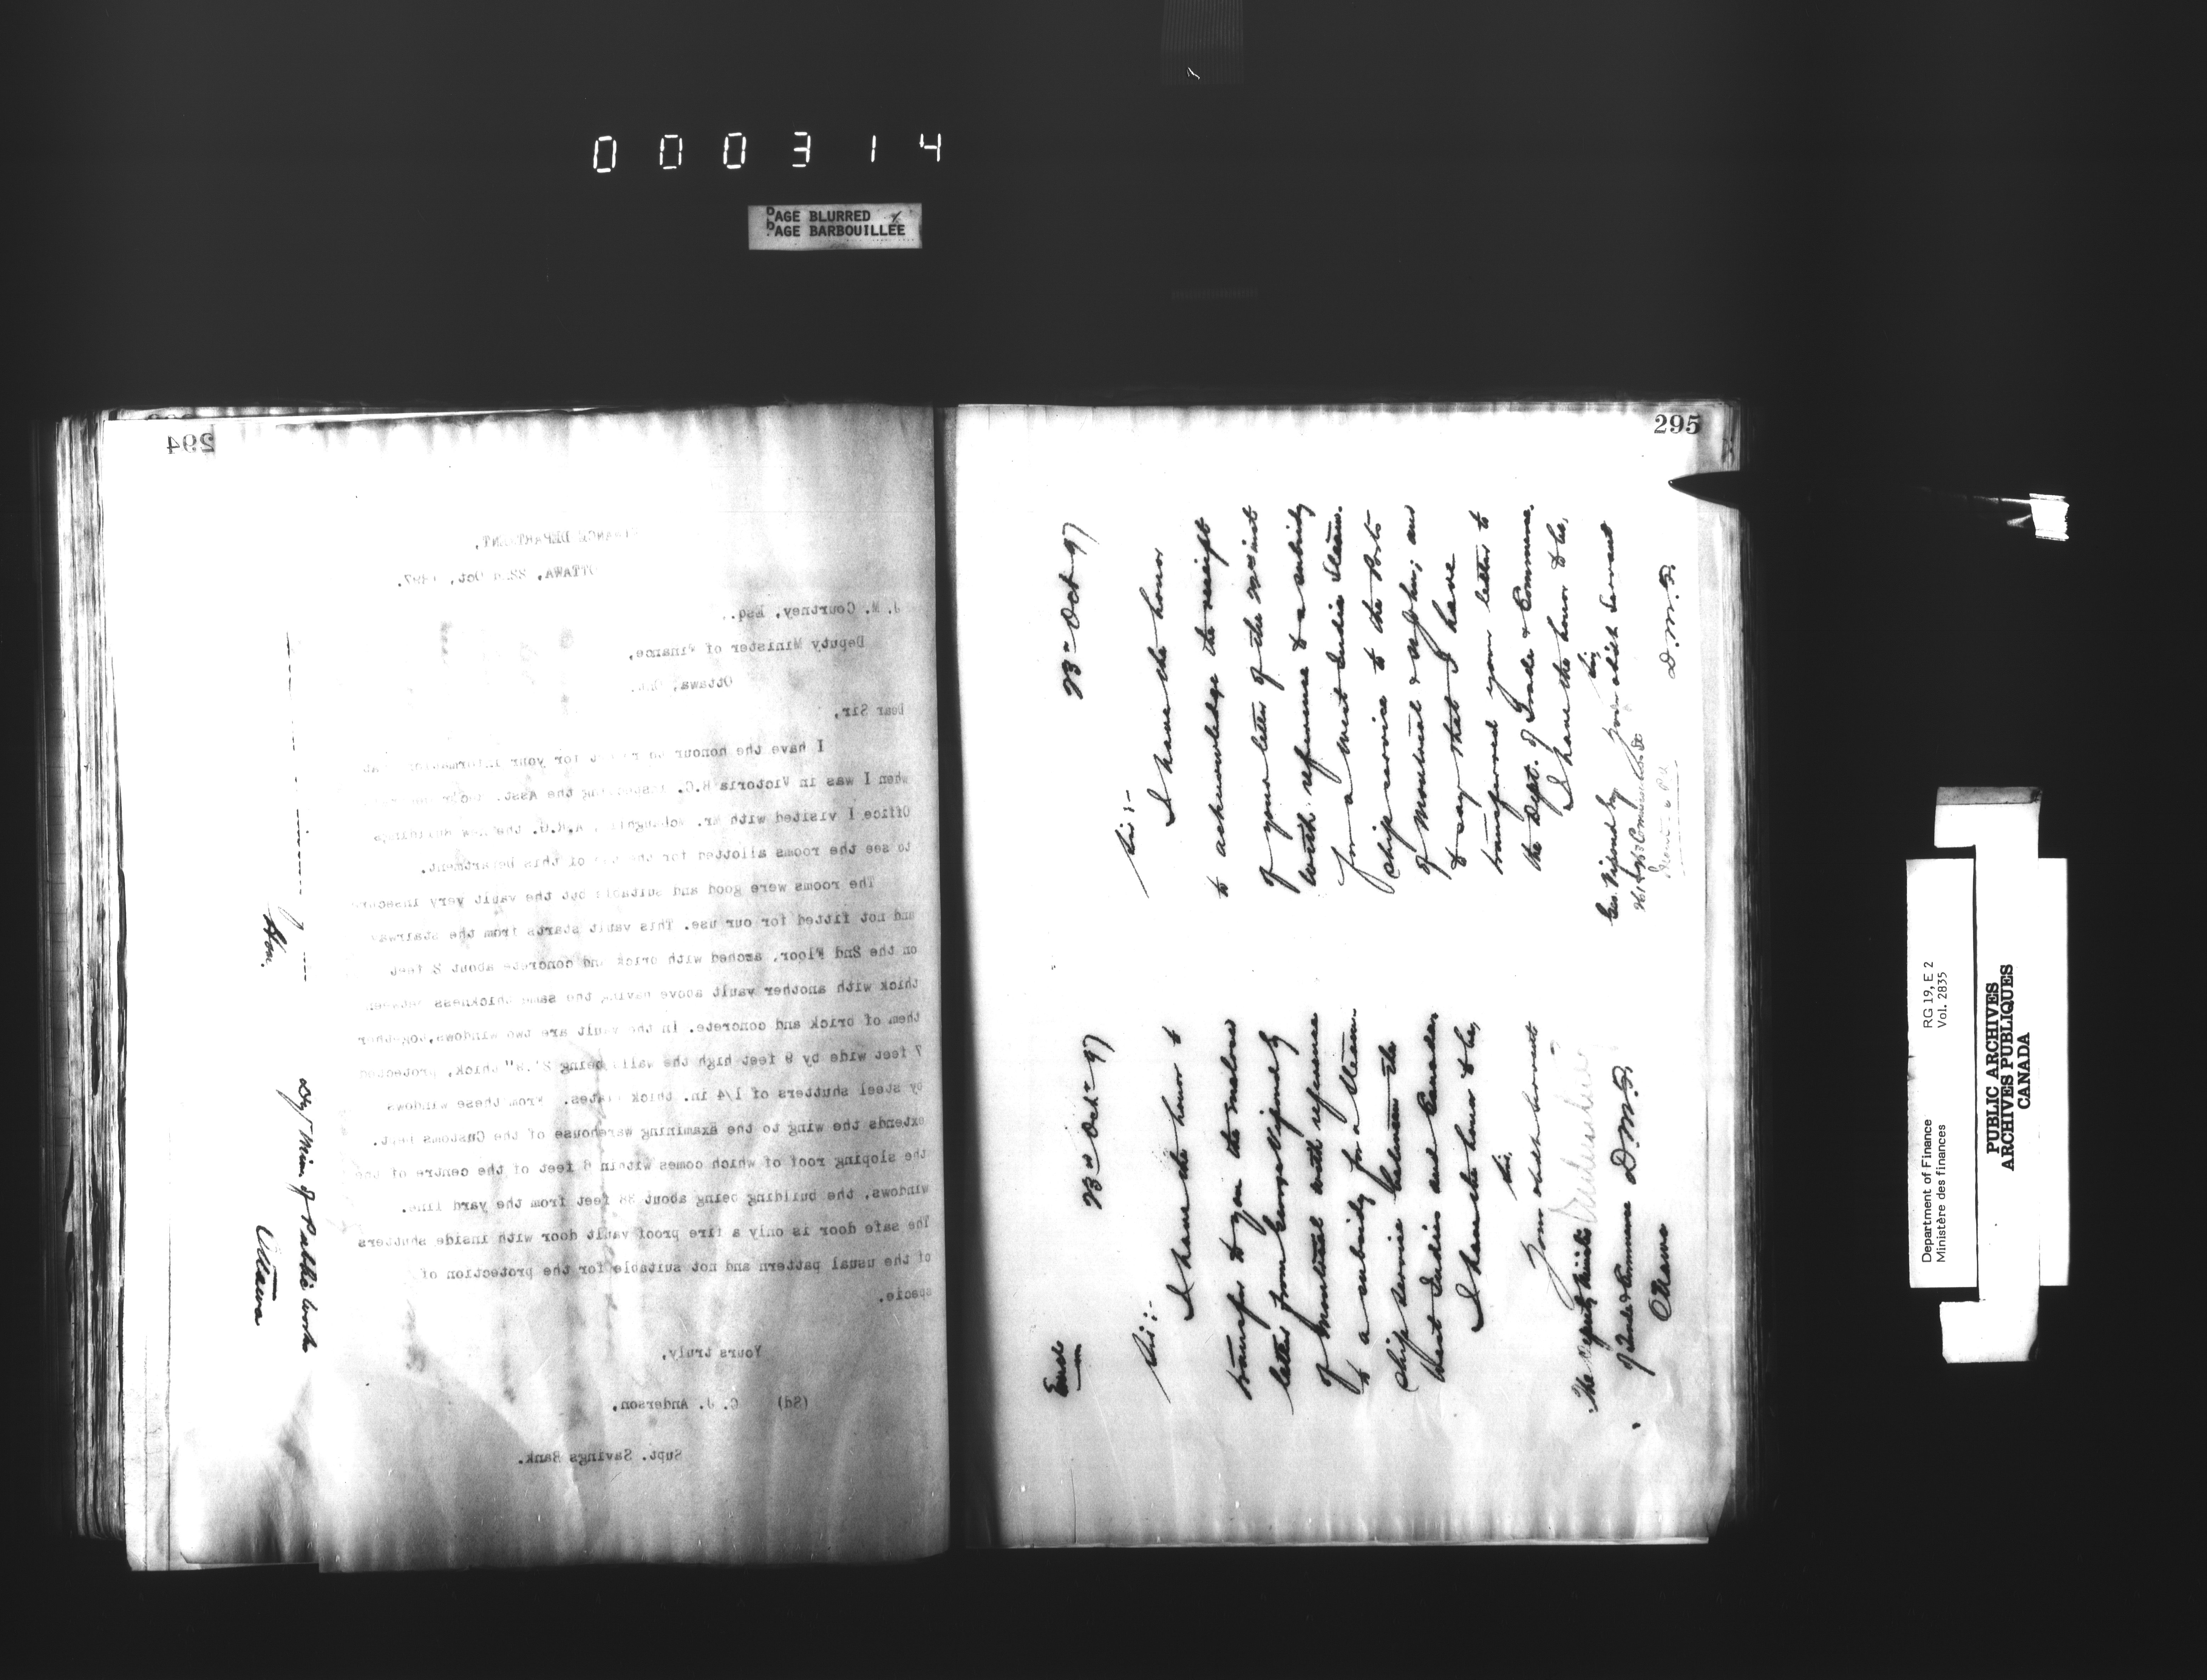 000314
PAGE BLURRED
PAGE BARBOUILLÉE
294
DEPARTMENT,
OTTAWA, 22nd Oct, 1897.
J. M. Courtney, Esq.,
Deputy Minister of Finance,
Ottawa, Ont.
Dear Sir,
I have the honour to report for your information that
when I was in Victoria B.C. inspecting the Asst.
Office I visited with Mr. McLaughlin, A.R.G. the new Buildings
to see the rooms allotted for the use of this Department.
The rooms were good and suitable but the vault very insecure
and not fitted for our use. This vault starts from the stairway
on the 2nd Floor, arched with brick and concrete about 2 feet
thick with another vault above having the same thickness between
them of brick and concrete. In the vault are two windows, together
7 feet wide by 9 feet high the walls being thick, protected
by steel shutters of 1/4 in. thick plates. From these windows
extends the wing to the Examining warehouse of the Customs Dept.
the sloping roof of which comes within 6 feet of the centre of the
windows, the building being about 38 feet from the yard line.
The safe door is only a fire proof vault door with inside shutters
of the usual pattern and not suitable for the protection of
specie.
Yours truly,
(Sd) C. J. Anderson,
Supt. Savings Bank.
Hon.
Dy. Min. of Public Works
Ottawa
295
Encl.
23rd Oct 97
Sir:-
I have the honor to
transfer to you the enclosed
letter from George Vipond
of Montreal with reference
to a subsidy for a steam-
ship service between the
West Indies and Canada.
I have the honor to be,
Sir,
Your obdt servant
D.M.F.
The Deputy Minister
of Trade & Commerce
Ottawa
23rd Oct 97
Sir:-
I have the honor
to acknowledge the receipt
of your letter of the inst
with reference to a subsidy
for a West Indies Steam-
ship service to the Ports
of Montreal & St John; and
to say that I have
transferred your letter to
the Dept. of Trade & Commerce.
I have the honor to be,
Sir,
Your obdt Servant
D.M.F.
Geo. Vipond Esq
Commissioners St
Department of Finance
Ministère des finances
RG 19, E 2
Vol. 2835
PUBLIC ARCHIVES
ARCHIVES PUBLIQUES
CANADA